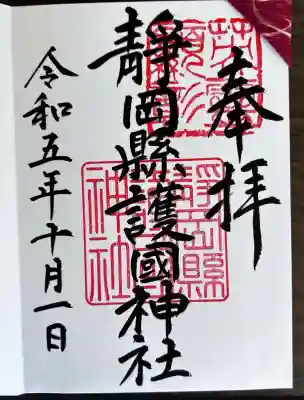 奉拝
靜岡縣護國神社
令和五年十月一日
靜岡縣
護國
神社